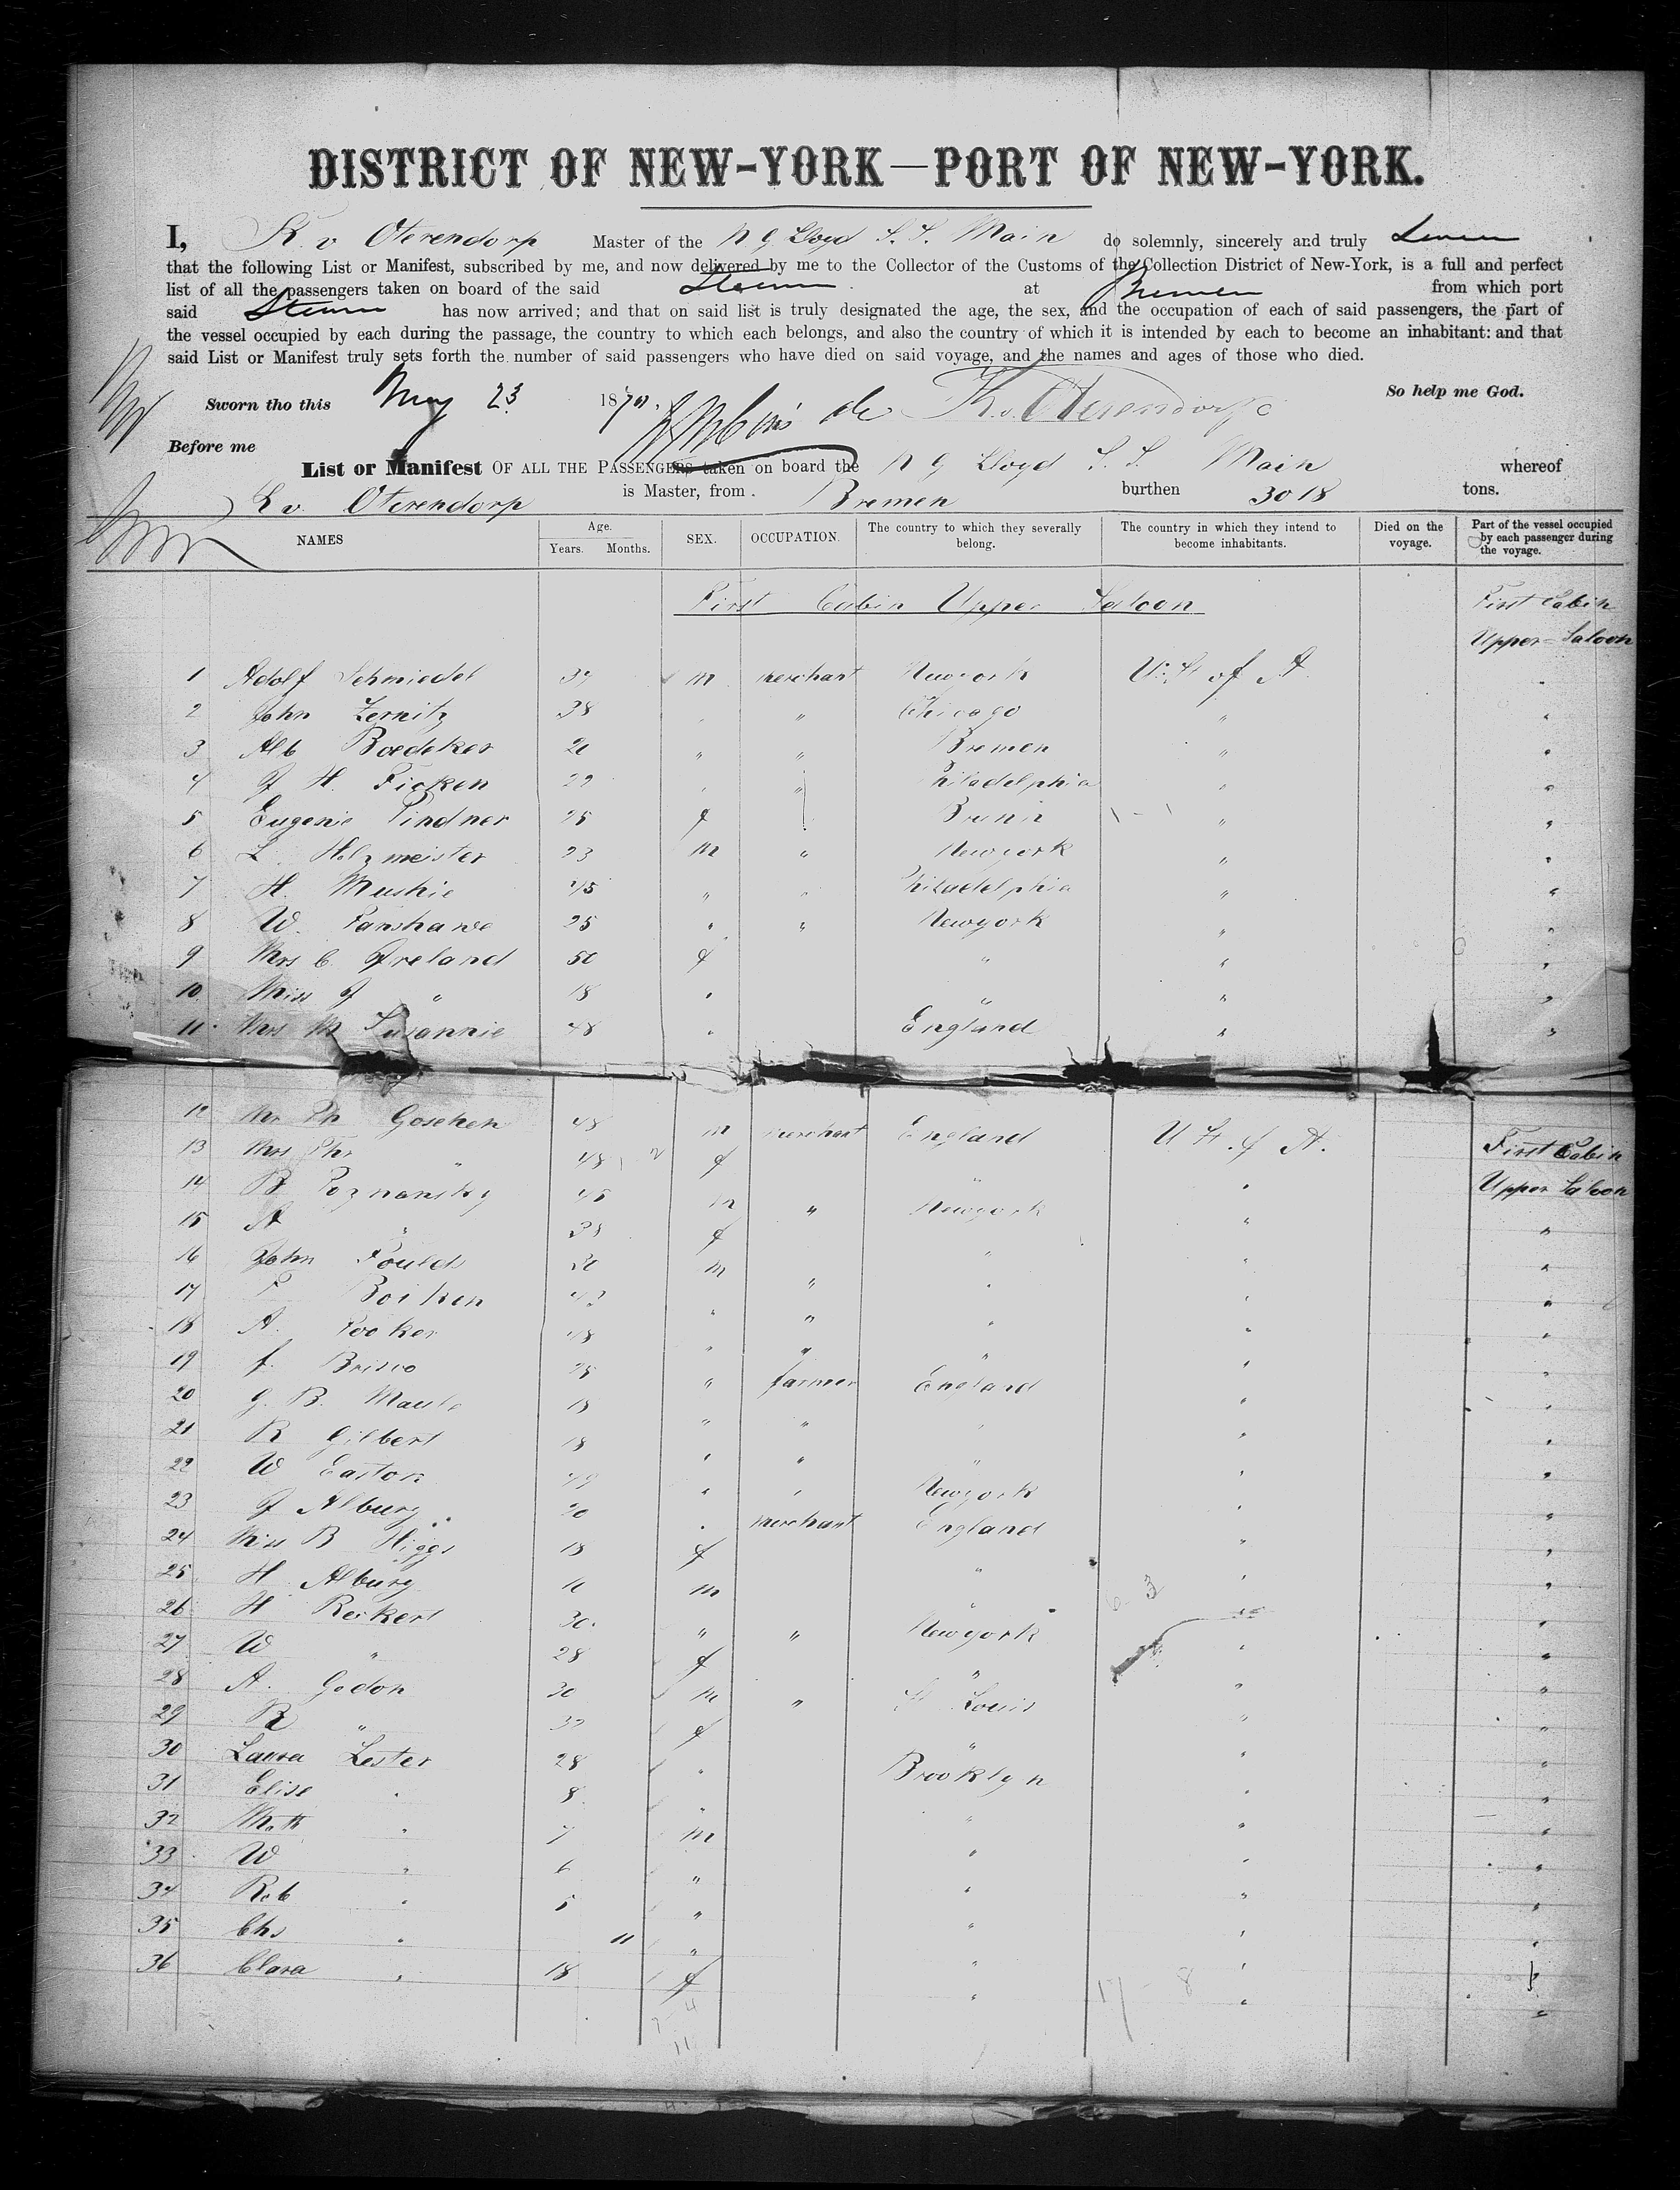 DISTRICT OF NEW-YORK—PORT OF NEW-YORK.
I, K. v Oterendorp Master of the N G Lloyd S. S. Main do solemnly, sincerely and truly swear
that the following List or Manifest, subscribed by me, and now delivered by me to the Collector of the Customs of the Collection District of New-York, is a full and perfect
list of all the passengers taken on board of the said Steamer at Bremen from which port
said Steamer has now arrived; and that on said list is truly designated the age, the sex, and the occupation of each of said passengers, the part of
the vessel occupied by each during the passage, the country to which each belongs, and also the country of which it is intended by each to become an inhabitant: and that
said List or Manifest truly sets forth the number of said passengers who have died on said voyage, and the names and ages of those who died.
So help me God.
Sworn tho this May 23 187 K. v. Oterendorp
Before me
List or Manifest OF ALL THE PASSENGERS taken on board the N G Lloyd S. S. Main whereof
K v. Oterendorp is Master, from Bremen burthen 3018 tons.
NAMES Age. Years. Months. SEX. OCCUPATION. The country to which they severally belong. The country in which they intend to become inhabitants. Died on the voyage. Part of the vessel occupied by each passenger during the voyage.
First Cabin Upper Saloon First Cabin
Upper Saloon
1 Adolf Schmiedel m merchant Newyork U. St of A. "
2 John Zernitz 38 " " Chicago " "
3 Alb Boedeker 20 " " Bremen " "
4 J H. Ficken 22 " " Philadelphia " "
5 Eugenie Lindner 25 f " "
6 L. Holzmeister 23 m " Newyork " "
7 H. Mushie 45 " " Philadelphia " "
8 W. Fanshawe 25 " " Newyork " "
9 Mrs C. Ireland 50 f " " "
10 Miss J " 18 " " " "
11 Mrs M 48 " England " "
12 Mr Ph Goschen 48 m merchant England U. St. of A. First Cabin
13 Mrs Ph " 48 f " " Upper Saloon
14 B Poznansky 45 m " Newyork " "
15 A " f " " "
16 John Foulds 30 m " " " "
17 F Boiken 43 " " " " "
18 A. Pooker 48 " " " " "
19 f. Brisco 25 " farmer England " "
20 G. B. Maule 18 " " " " "
21 R Gilbert 18 " " " " "
22 W Easton 49 " " Newyork " "
23 J Albury 20 " merchant England " "
24 Miss B Higgs 18 f " " "
25 H Albury m " " "
26 H Reikert 30 " " Newyork " "
27 W " 28 f " " "
28 A. Godon 30 m " St Louis " "
29 R " 32 f " " "
30 Laura Lester 28 " Brooklyn " "
31 Elise " 8 " " " "
32 Math " 7 m " " "
33 W " 6 " " " "
34 Rob " 5 " " " "
35 Chs " 11 " " " "
36 Clara " 18 f " " "
17 - 8